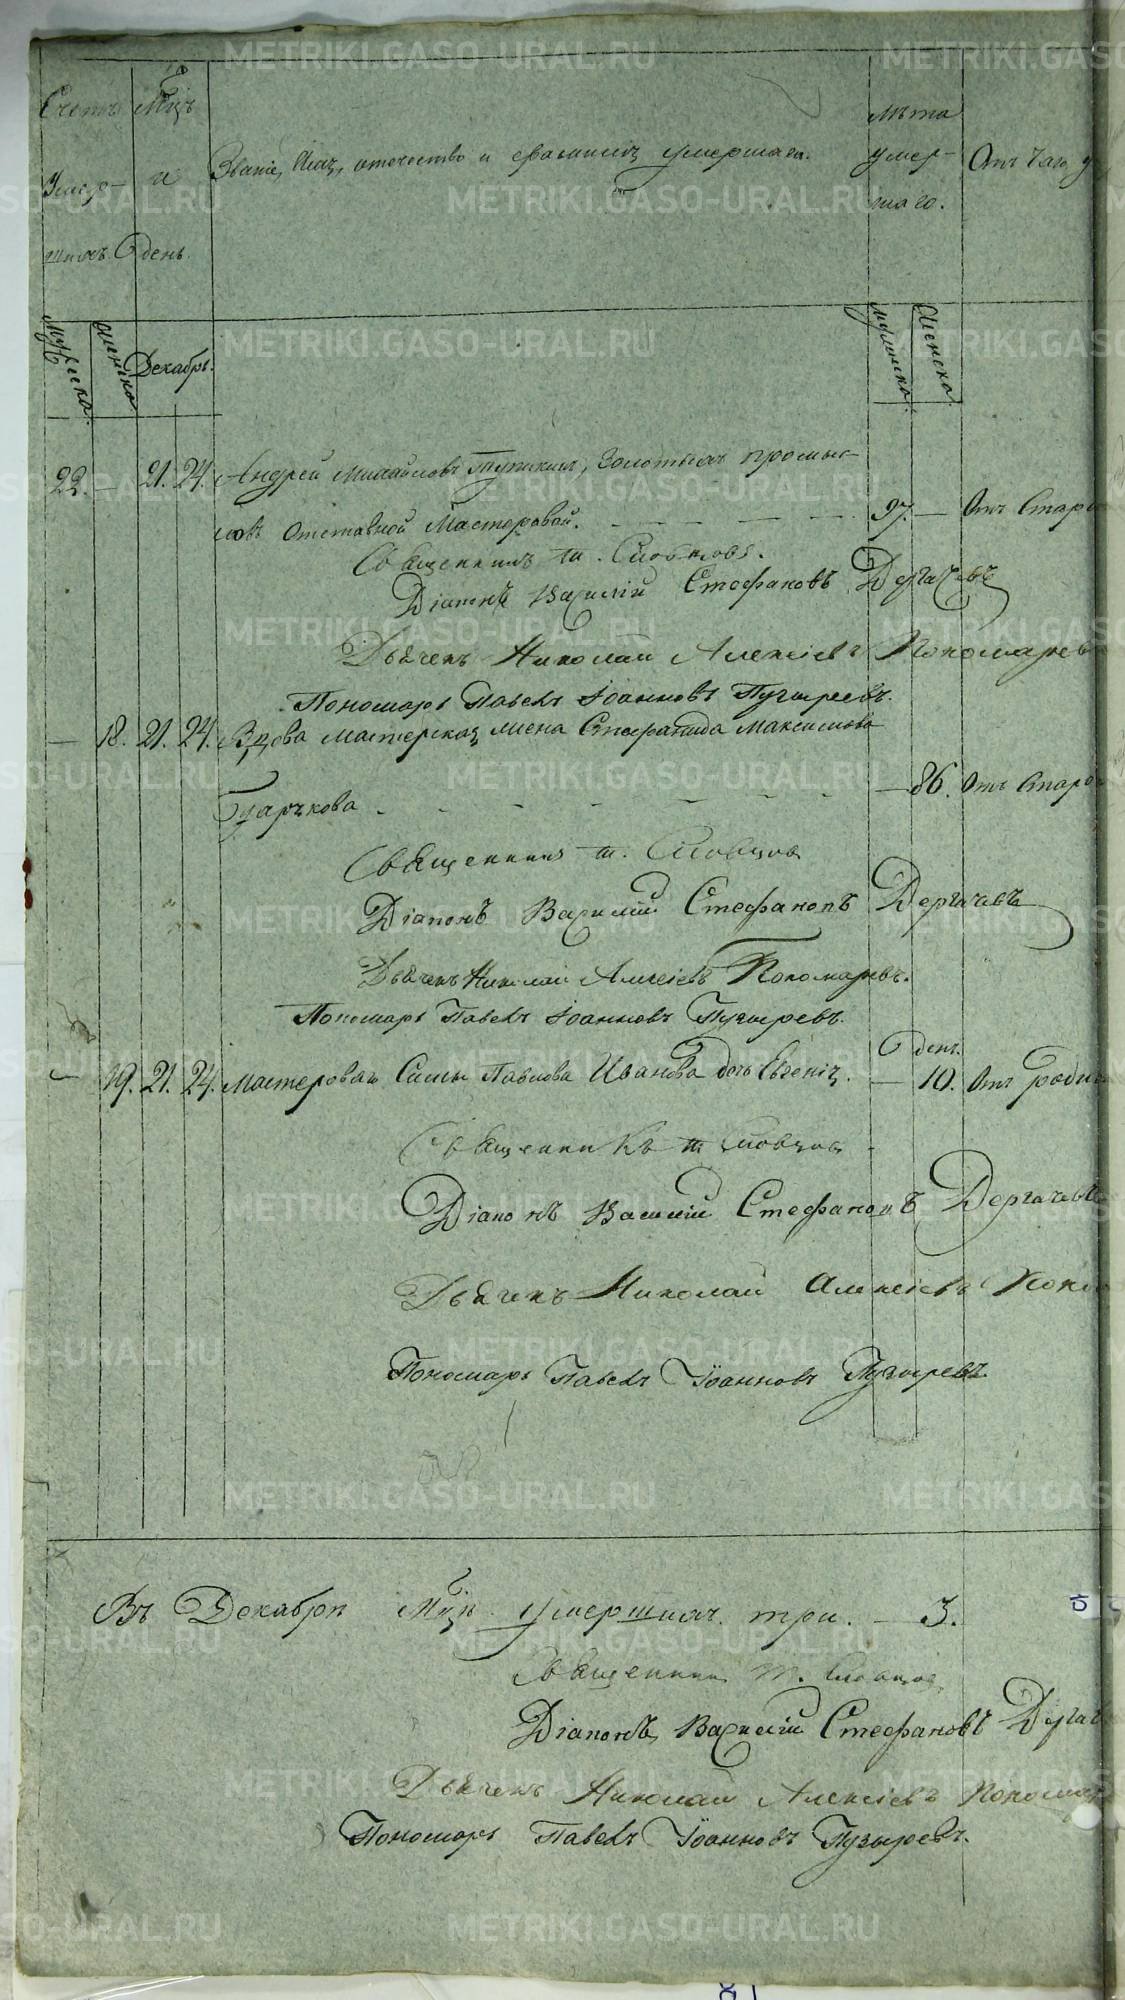 Счетъ Мцъ
Званіе, Имя, отечество и фамилія умершаго.
лѣта
Умер- и
умер- Отъ чего у
шихъ. день.
шаго.
мужеска. женска. Декабрь.
мужеска. женска.
22. — 21. 24. Андрей Михайловъ Тупикинъ, Золотыхъ промыс-
ловъ отставной Мастеровой. 97. — Отъ Старо
Священникъ Т. Словцовъ.
Діаконъ Василій Стефановъ Дергачевъ
Дьячекъ Николай Алексіевъ Пономарев
Пономарь Павелъ Іоанновъ Пузыревъ.
— 18. 21. 24. Вдова мастерская жена Стефанида Максимова
— 86. Отъ Старо
Священникъ Т. Словцовъ
Діаконъ Василій Стефановъ Дергачевъ
Дьячекъ Николай Алексіевъ Пономаревъ.
Пономарь Павелъ Іоанновъ Пузыревъ.
день.
— 19. 21. 24. Мастероваго Силы Павлова Иванова дочь Евгенія. — 10. Отъ родим
Священникъ Т. Словцовъ
Діаконъ Василій Стефановъ Дергачевъ
Дьячекъ Николай Алексіевъ Поно
Пономарь Павелъ Іоанновъ Пузыревъ.
Въ Декабрѣ Мцѣ умершихъ три. — 3.
Священникъ Т. Словцовъ
Діаконъ Василій Стефановъ Дергач
Дьячекъ Николай Алексіевъ Понома
Пономарь Павелъ Іоанновъ Пузыревъ.
METRIKI.GASO-URAL.RU